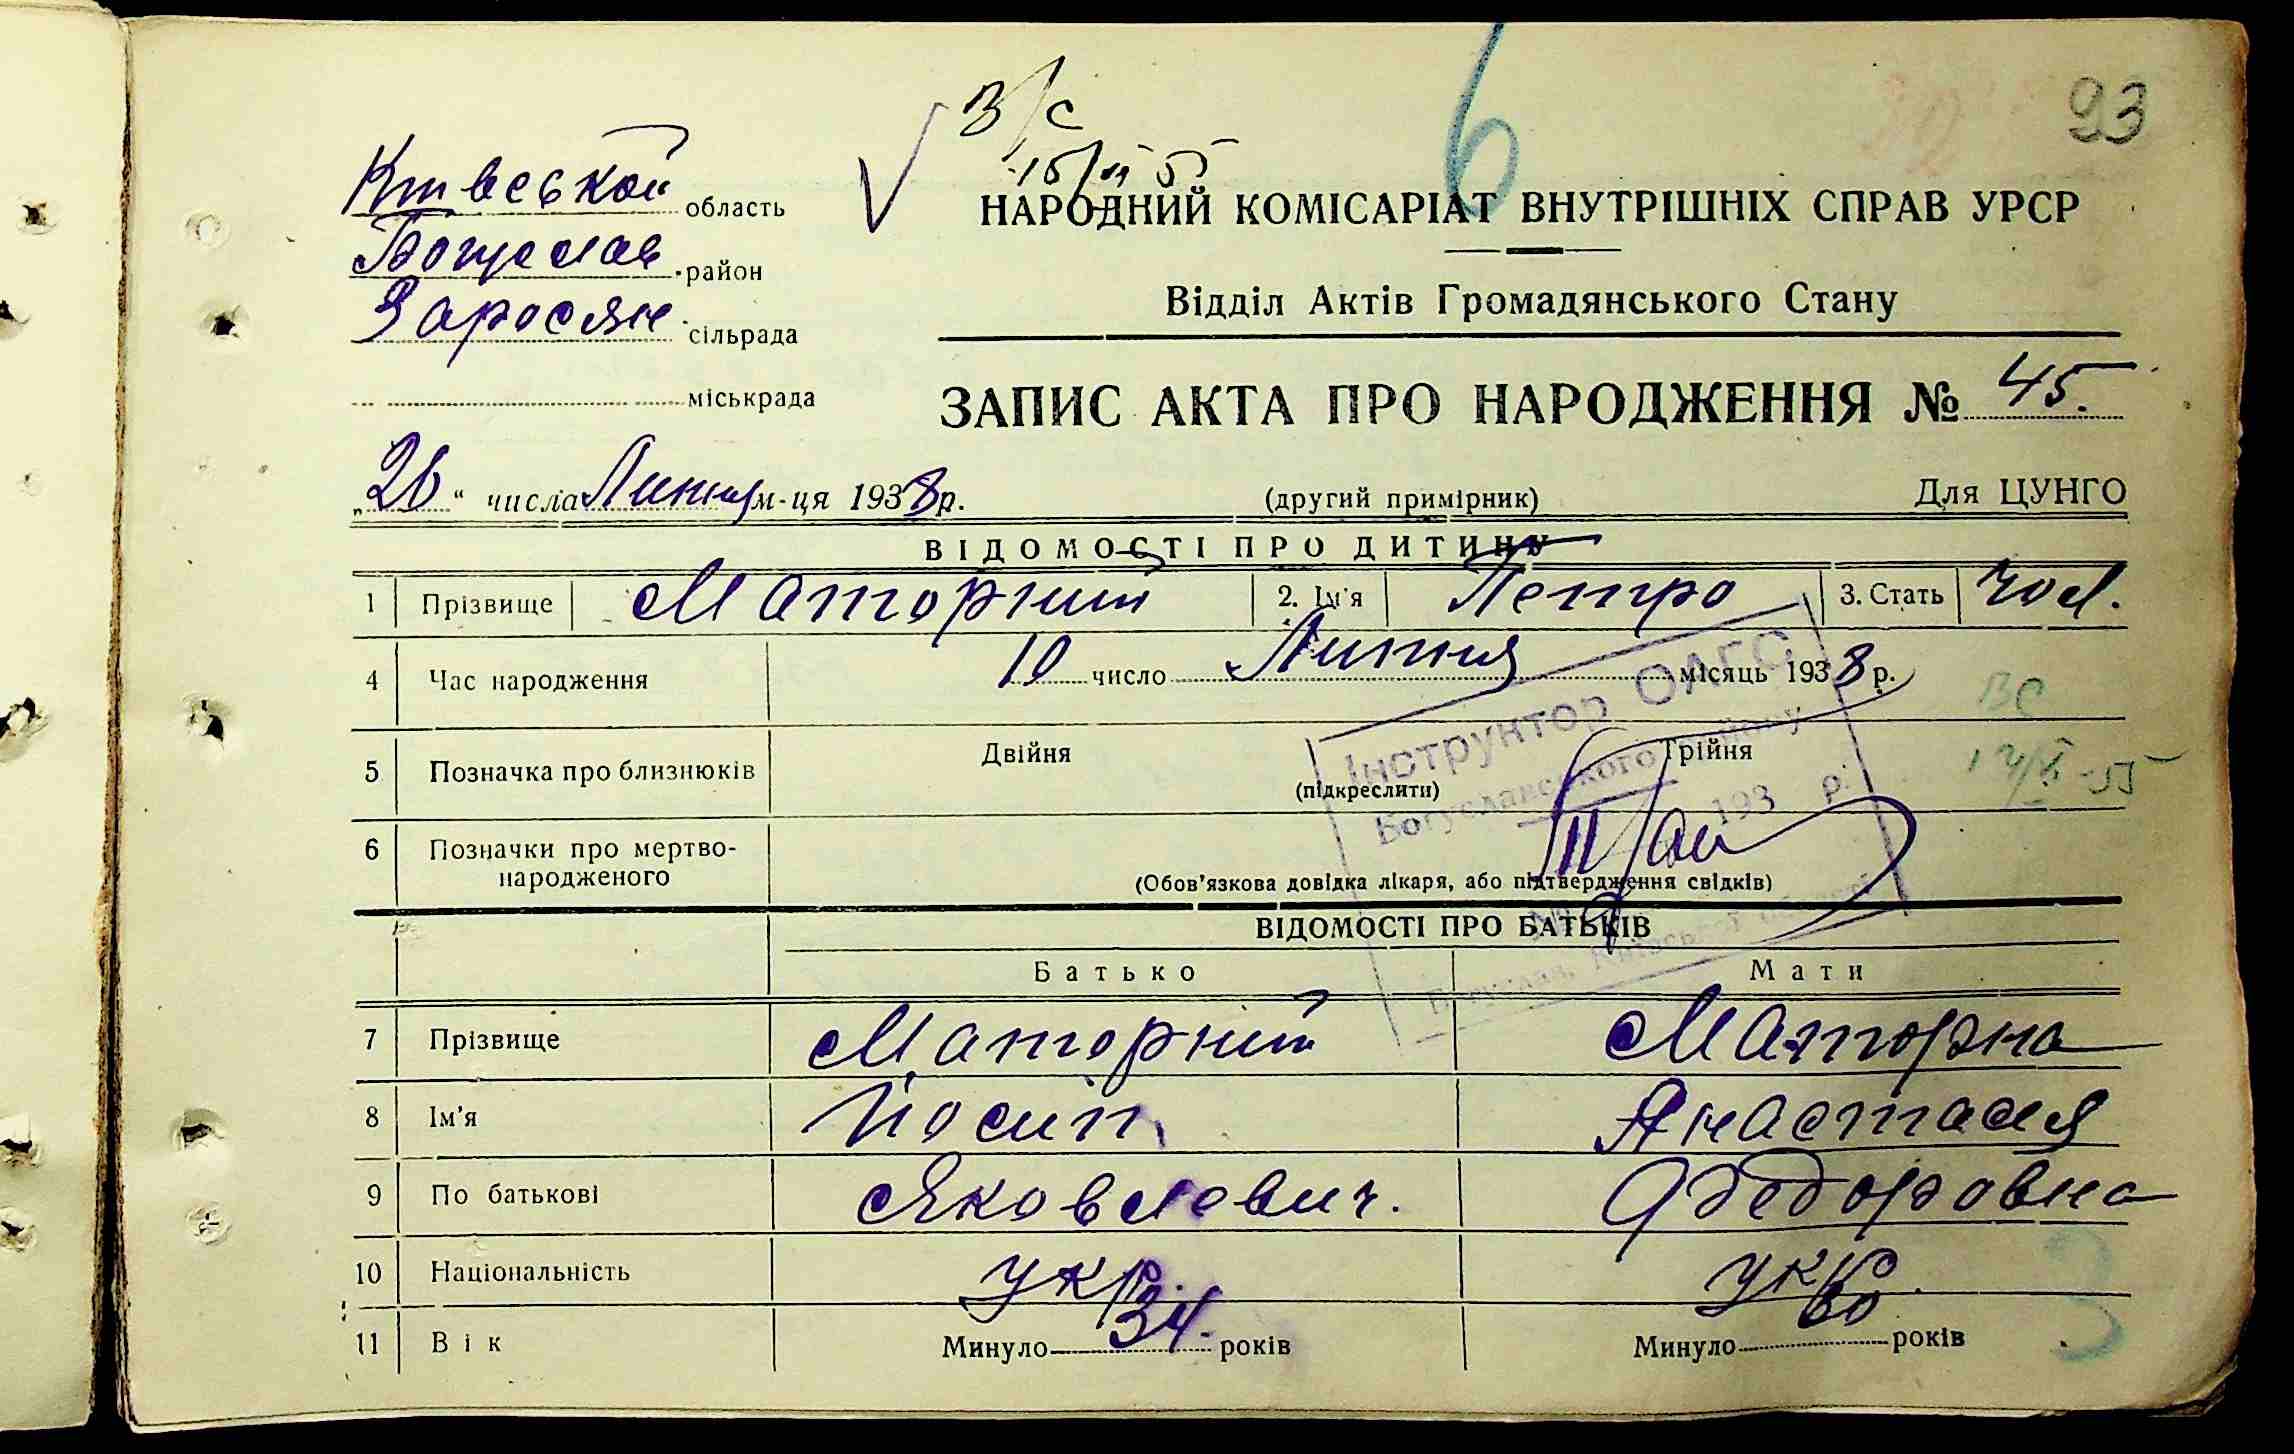 93
В/с
15/II 55
6
Київської область
Богуслав район
Заросян сільрада
міськрада
НАРОДНИЙ КОМІСАРІАТ ВНУТРІШНІХ СПРАВ УРСР
Відділ Актів Громадянського Стану
ЗАПИС АКТА ПРО НАРОДЖЕННЯ № 45.
„26“ числа Липня м-ця 1938 р.
(другий примірник)
Для ЦУНГО
ВІДОМОСТІ ПРО ДИТИНУ
1 Прізвище Маторний 2. Ім'я Петро 3. Стать чол.
4 Час народження 10 число Липня місяць 1938 р.
ВС
5 Позначка про близнюків Двійня (підкреслити) Трійня
6 Позначки про мертвонародженого
(Обов'язкова довідка лікаря, або підтвердження свідків)
Інструктор ОАГС
Богуславського району
193 р.
ВІДОМОСТІ ПРО БАТЬКІВ
Батько Мати
7 Прізвище Маторний Маторна
8 Ім'я Йосип Анастасія
9 По батькові Яковлевич. Федоровна
10 Національність укр. укр.
11 Вік Минуло 34 років Минуло 30 років
3